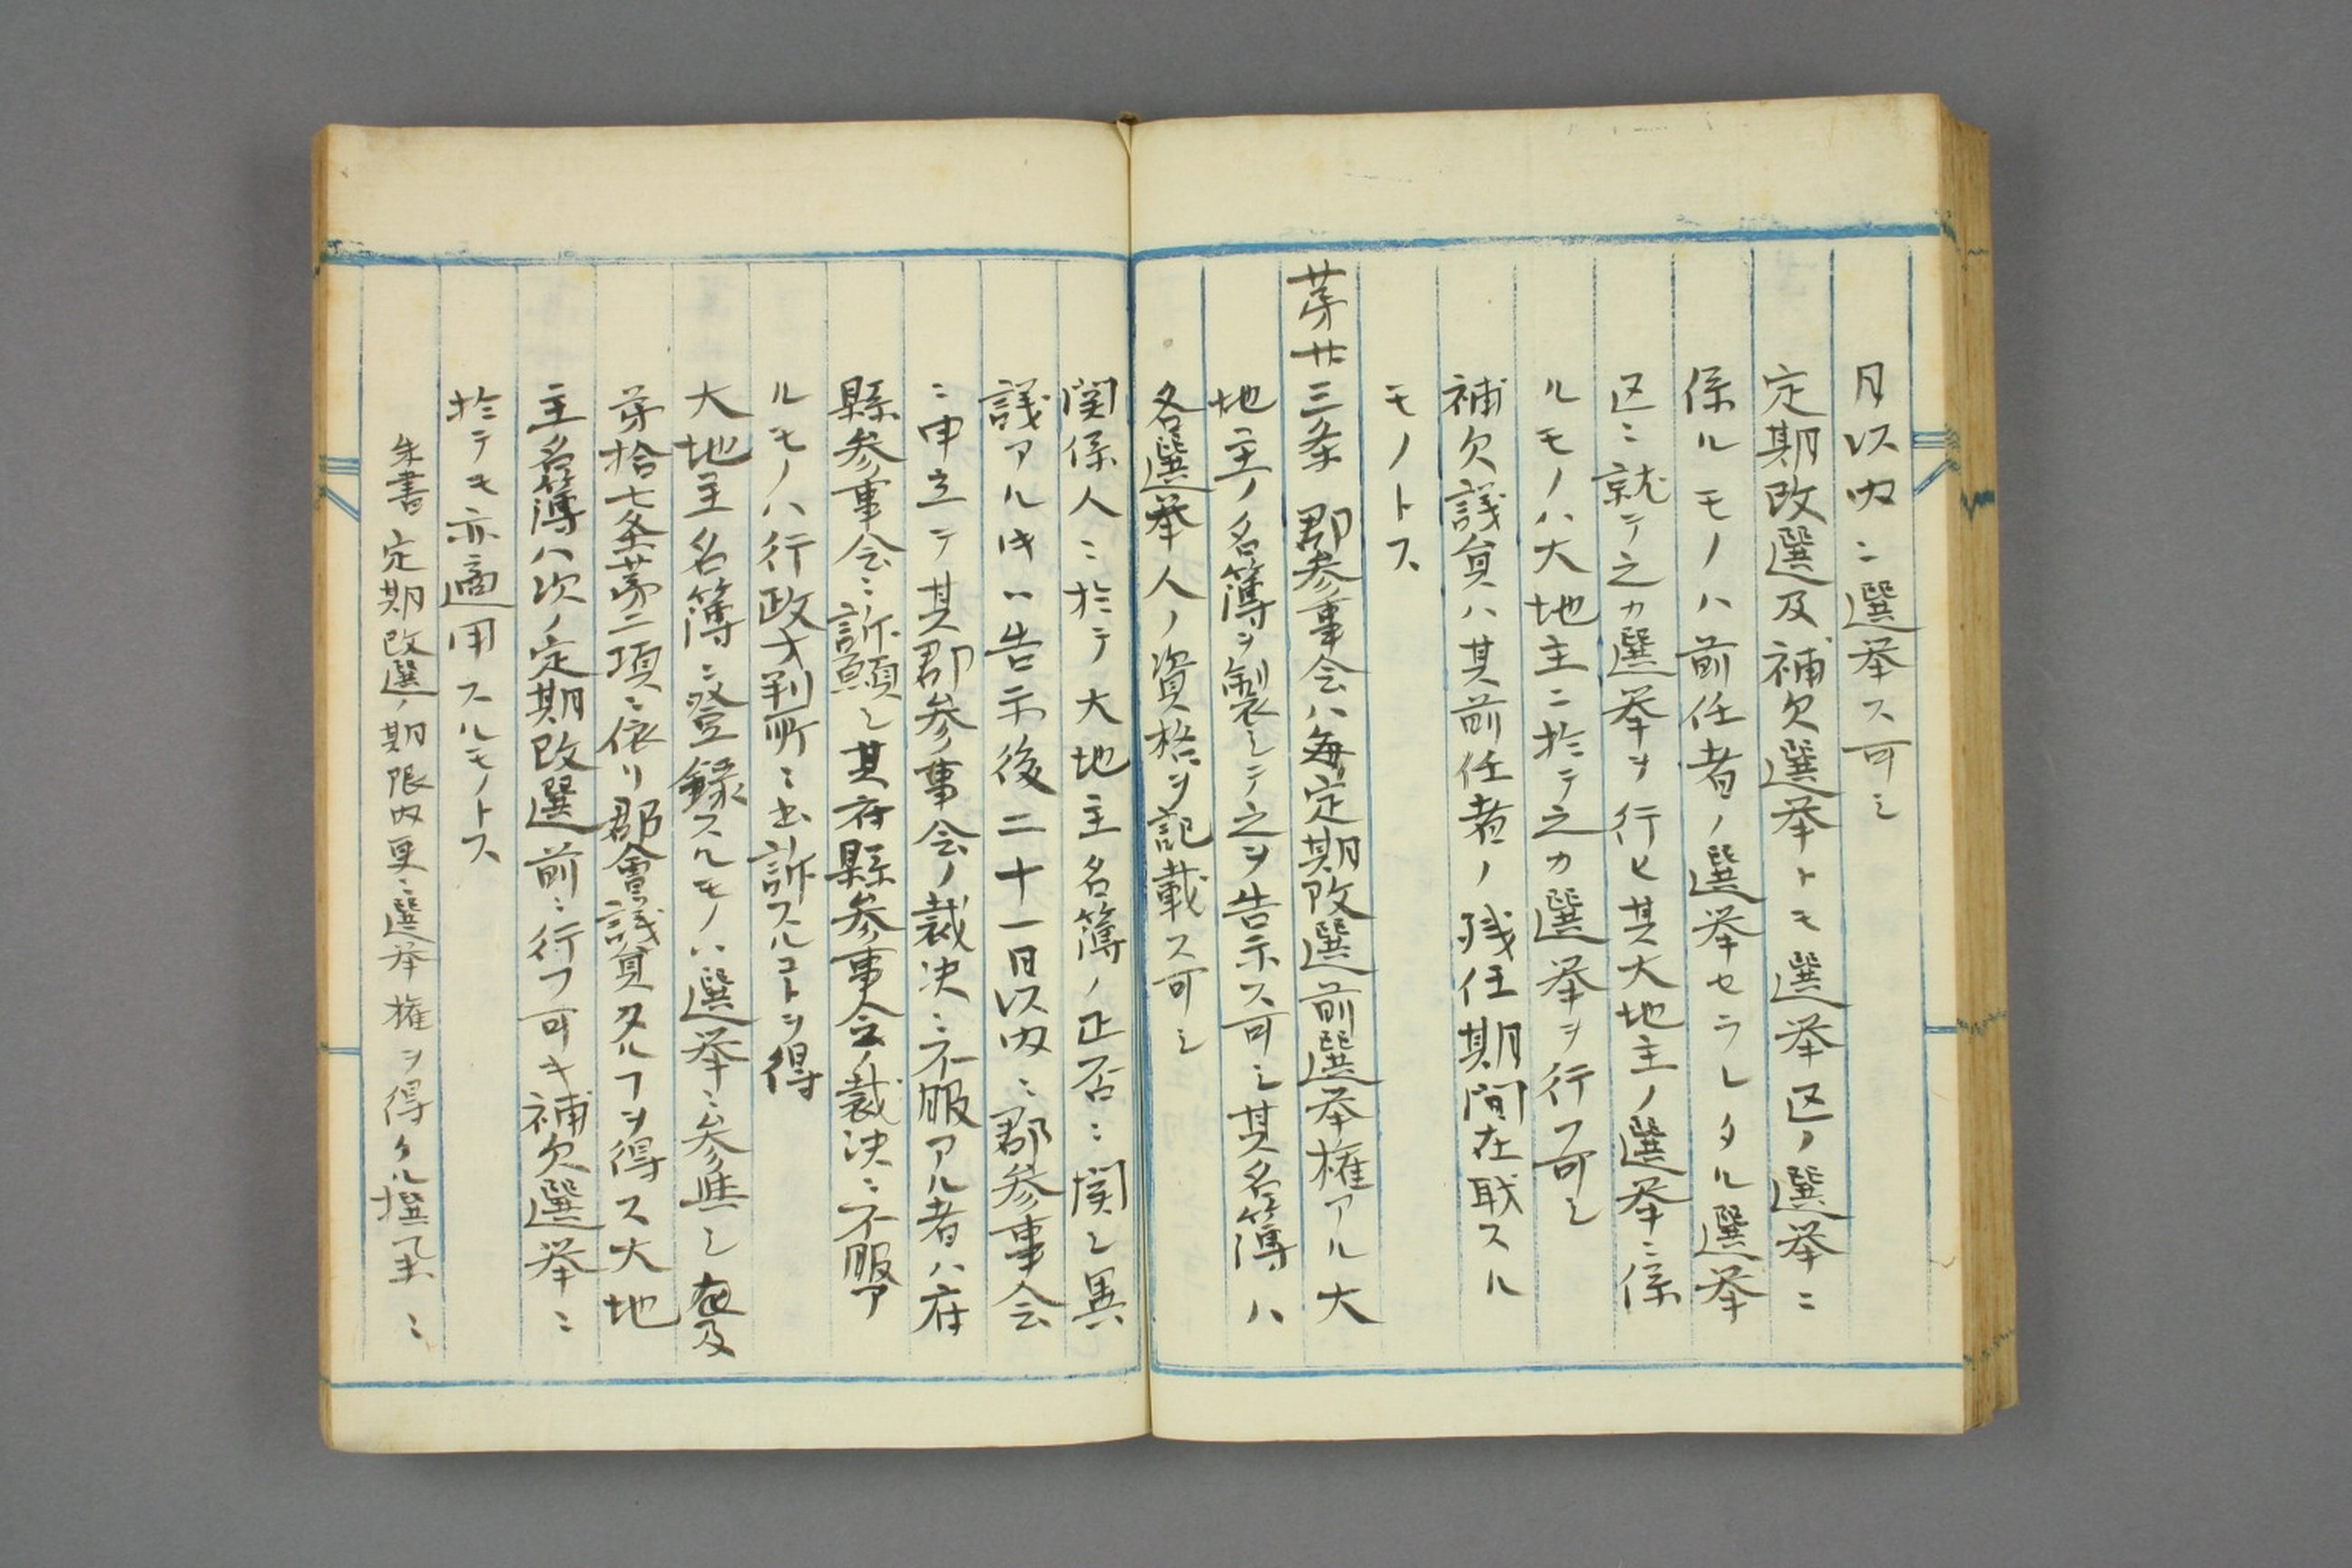 月以内ニ選挙ス可シ
定期改選及補欠選挙トモ選挙区ノ選挙ニ
係ルモノハ前任者ノ選挙セラレタル選挙
区ニ就テ之カ選挙ヲ行ヒ其大地主ノ選挙ニ係
ルモノハ大地主ニ於テ之カ選挙ヲ行フ可シ
補欠議員ハ其前任者ノ残任期間在職スル
モノトス
第廿三条 郡参事会ハ毎定期改選前選挙権アル大
地主ノ名簿ヲ製シテ之ヲ告示ス可シ其名簿ハ
各選挙人ノ資格ヲ記載ス可シ
関係人ニ於テ大地主名簿ノ正否ニ関シ異
議アルトキハ告示後二十一日以内ニ郡参事会
ニ申立テ其郡参事会ノ裁決ニ不服アル者ハ府
縣参事会ニ訴願シ其府縣参事会ノ裁決ニ不服ア
ルモノハ行政才判所ニ出訴スルコトヲ得
大地主名簿ニ登録スルモノハ選挙ニ参与シ及
第拾七条第二項ニ依リ郡會議員タルヿヲ得ス大地
主名簿ハ次ノ定期改選前ニ行フ可キ補欠選挙ニ
於テモ亦適用スルモノトス
朱書 定期改選ノ期限内更ニ選挙権ヲ得タル地主ニ